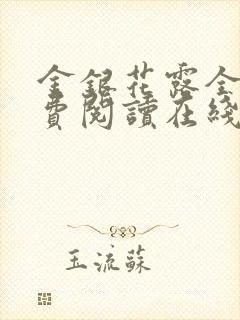 金銀花露全
費閱讀在綫
玉流蘇